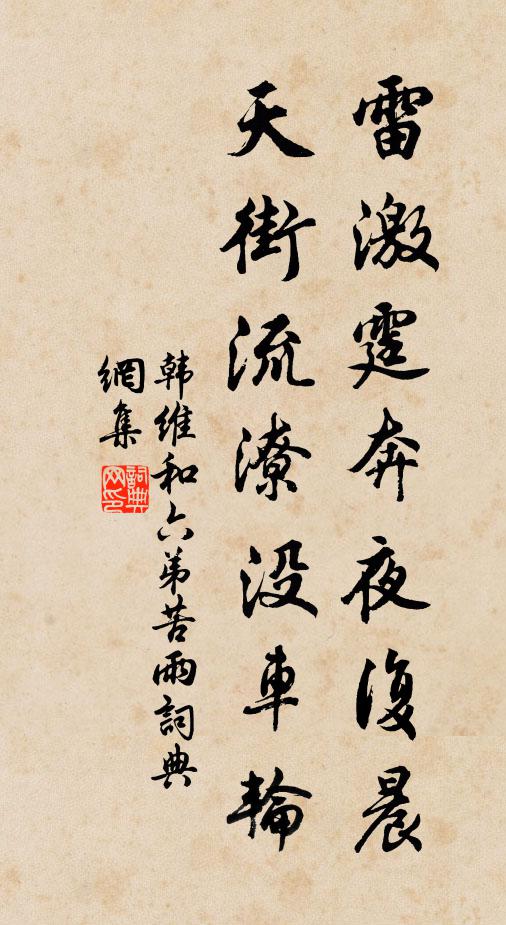 雷激霆奔夜復晨
天街流潦没車輪
韩维和六弟苦雨詞典
網集
詞典
网印